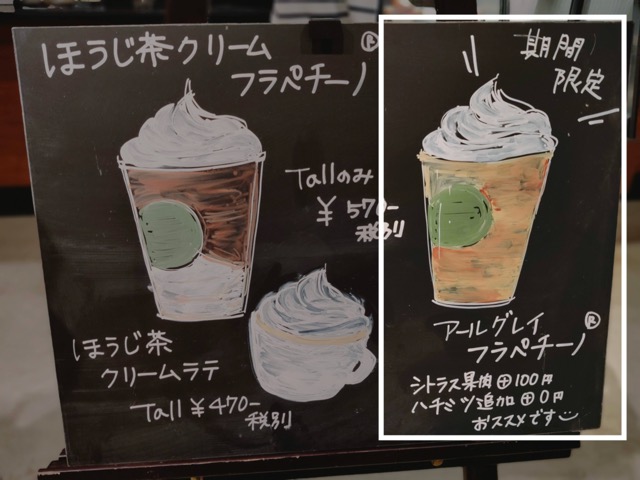 ほうじ茶クリーム
フラペチーノ®
Tallのみ
¥570-
税別
ほうじ茶
クリームラテ
Tall ¥470-
税別
期間
限定
アールグレイ
フラペチーノ®
シトラス果肉⊕100円
ハチミツ追加⊕0円
おススメです